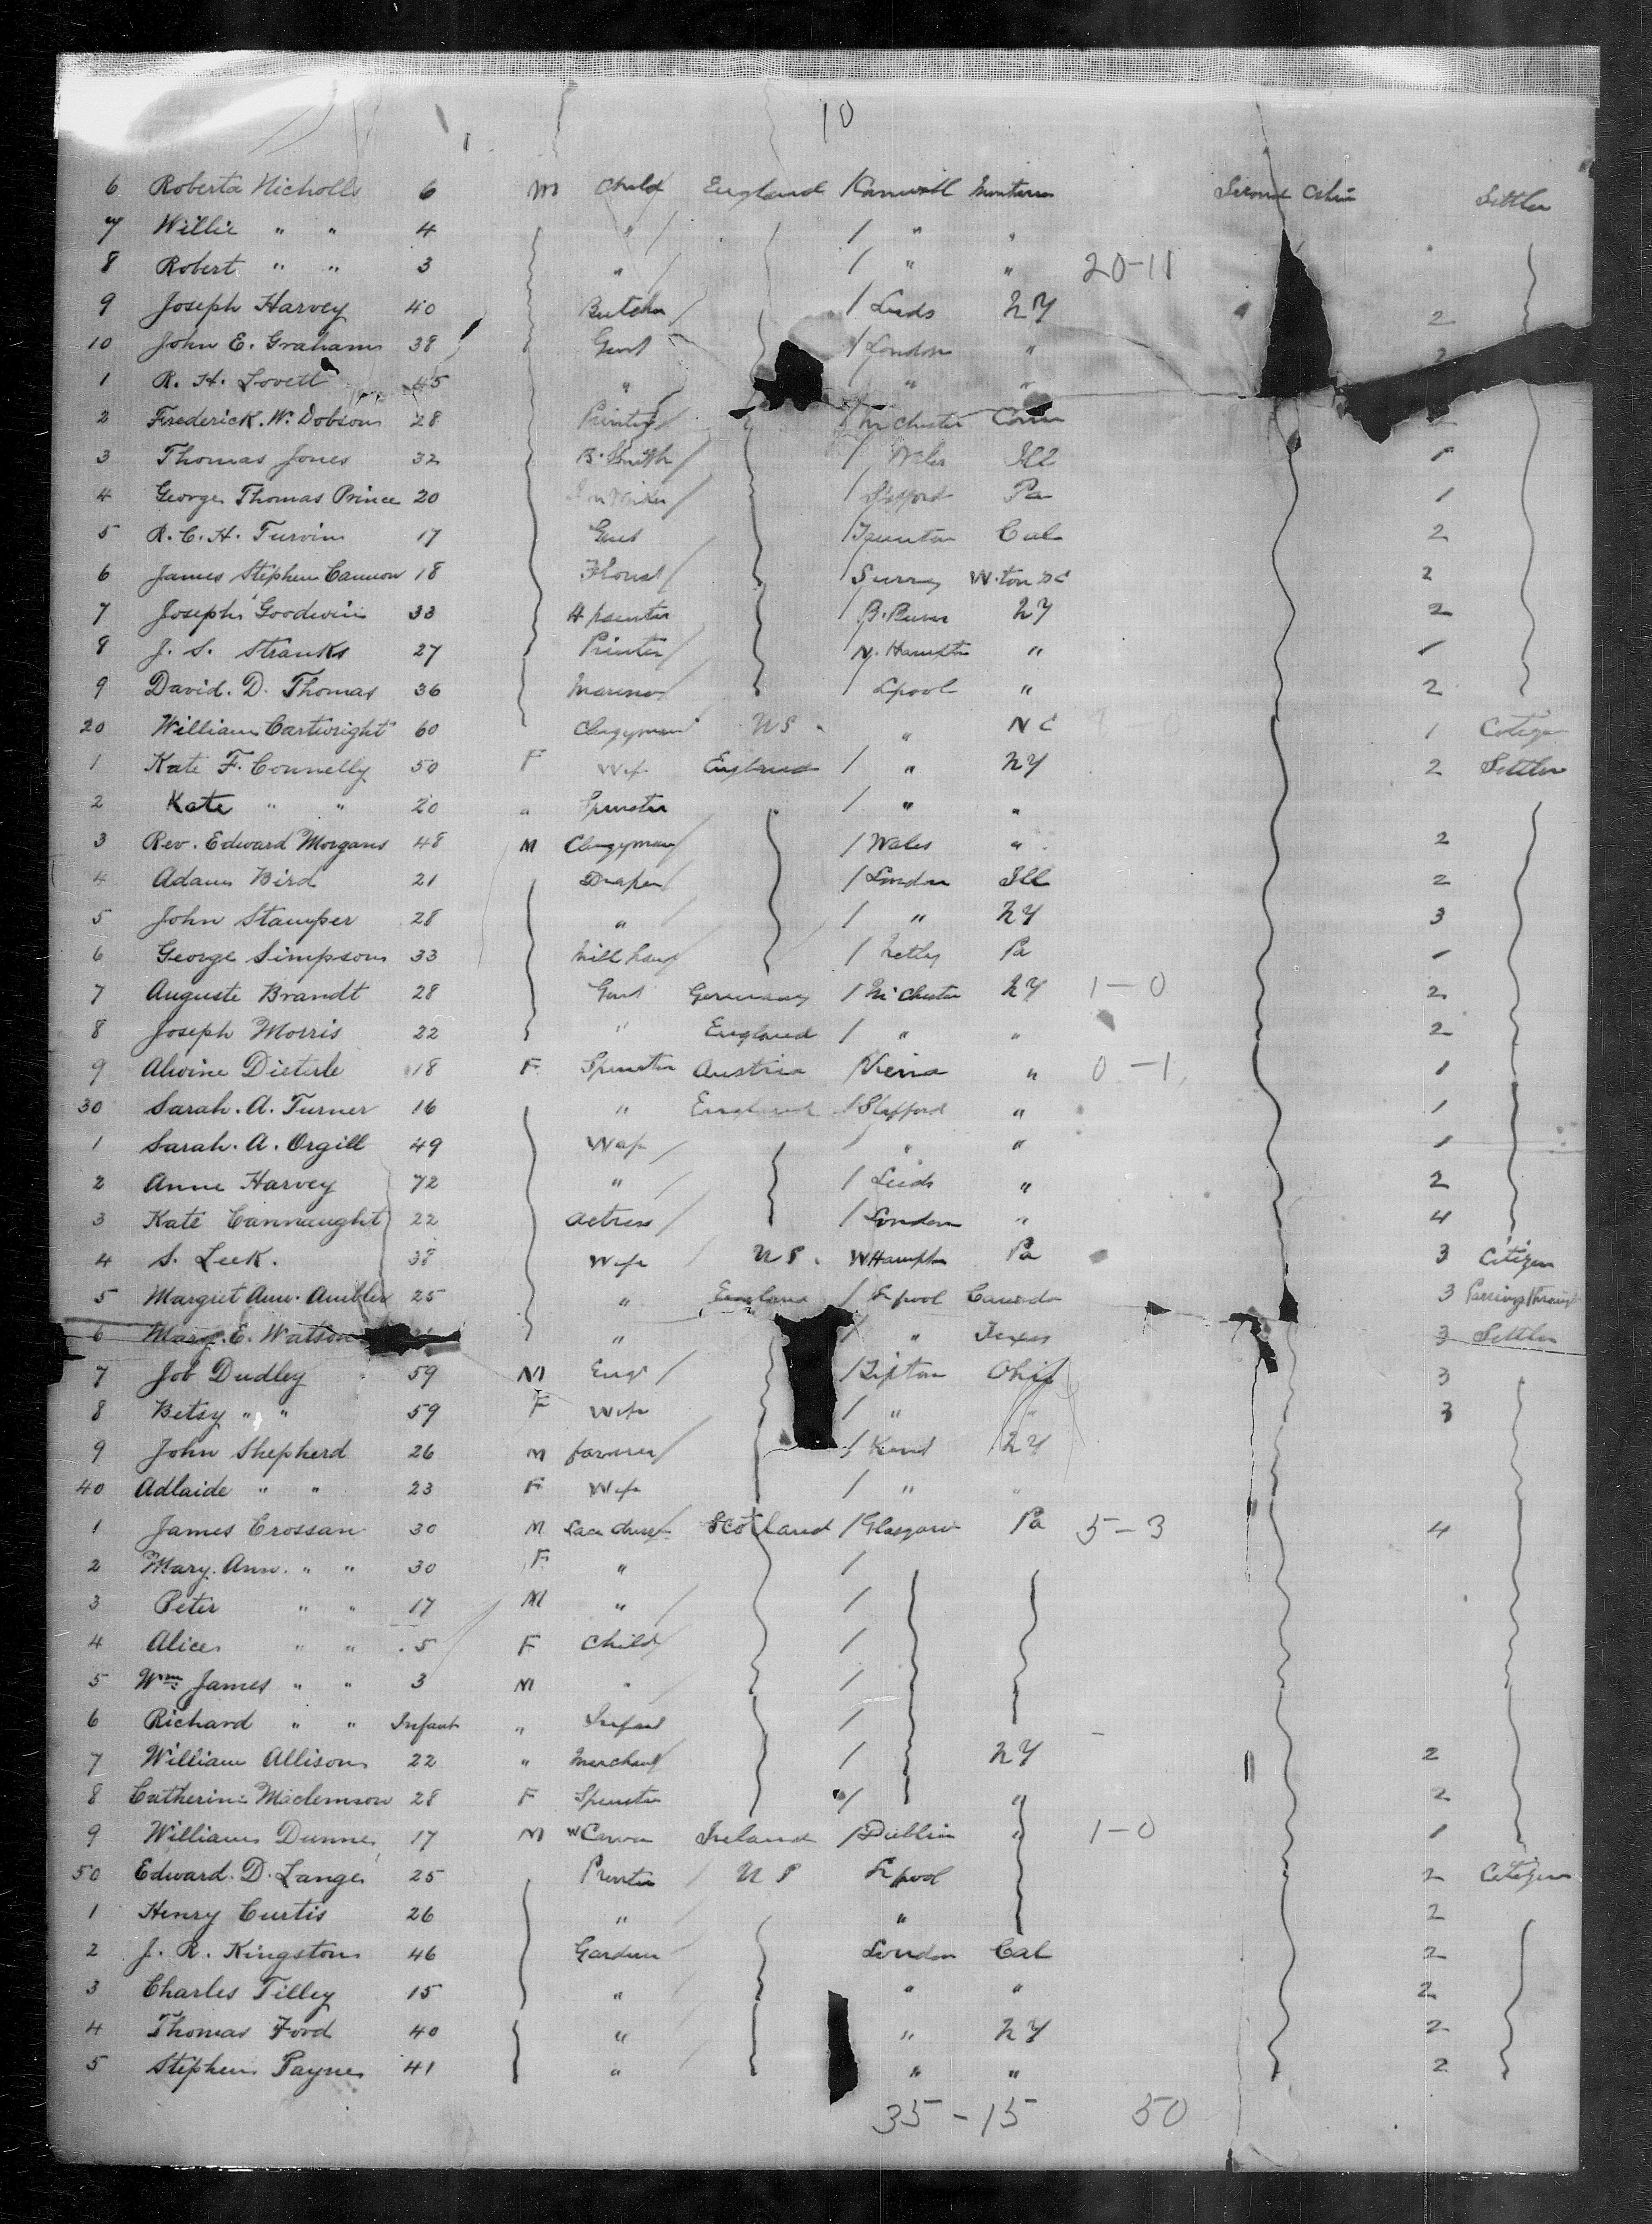 10
6 Roberta Nicholls 6 M Child England / Montana Second Cabin Settler
7 Willie " " 4 " / " "
8 Robert " " 3 " / " " 20-11
9 Joseph Harvey 40 Butcher / Leeds NY 2
10 John E. Graham 38 Gent / London " 2
1 R. H. Lovett 45 " " "
2 Frederick. W. Dobson 28 Printer / M Chester Conn
3 Thomas Jones 32 B. Smith / Wales Ill 1
4 George Thomas Prince 20 / Stafford Pa 1
5 R. C. H. Turvin 17 Gent / Taunton Cal 2
6 James Stephen Cannon 18 Florist / Surrey W.ton DC 2
7 Joseph Goodwin 33 / NY 2
8 J. S. Stranks 27 Printer / N. Hampton " 1
9 David. D. Thomas 36 Mariner / Lpool " 2
20 William Cartwright 60 Clergyman US " NC 1 Citizen
1 Kate F. Connelly 50 F Wife England / " NY 2 Settler
2 Kate " " 20 " Spinster / " "
3 Rev. Edward Morgans 48 M Clergyman / Wales " 2
4 Adam Bird 21 Draper / London Ill 2
5 John Stamper 28 " / " NY 3
6 George Simpson 33 Mill hand / Pa 1
7 Auguste Brandt 28 Gent Germany / M Chester NY 1-0 2
8 Joseph Morris 22 " England / " " 2
9 Alwine Dieterle 18 F Spinster Austria / " 0-1 1
30 Sarah. A. Turner 16 " England / Stafford " 1
1 Sarah. A. Orgill 49 Wife / " " 1
2 Anne Harvey 72 " / Leeds " 2
3 Kate Cannaught 22 Actress / London " 4
4 S. Leek. 38 Wife US. WHampton Pa 3 Citizen
5 Margret Ann. Ambler 25 " England / Lpool Canada 3 Passing through
6 Mary. E. Watson " / " Texas 3 Settler
7 Job Dudley 59 M Engr / Tipton Ohio 3
8 Betsy " " 59 F Wife / " " 3
9 John Shepherd 26 M farmer / Kent NY
40 Adlaide " " 23 F Wife / " "
1 James Crossan 30 M Scotland / Glasgow Pa 5-3 4
2 Mary. Ann. " " 30 F " /
3 Peter " " 17 M " /
4 Alice " " 5 F Child /
5 Wm James " " 3 M " /
6 Richard " " Infant " Infant /
7 William Allison 22 " Merchant / NY 2
8 Catherine Maclemson 28 F Spinster / " 2
9 William Dunne 17 M Ireland / Dublin " 1-0 1
50 Edward. D. Lange 25 Printer US Lpool 2 Citizen
1 Henry Curtis 26 " " 2
2 J. R. Kingston 46 Gardner London Cal 2
3 Charles Tilley 15 " " " 2
4 Thomas Ford 40 " " NY 2
5 Stephen Payne 41 " " " 2
35-15 50